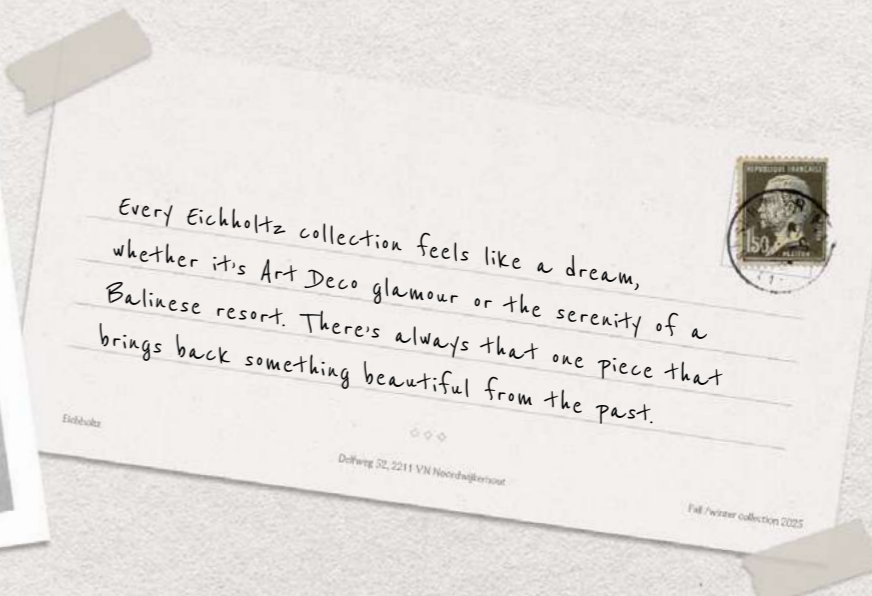 REPUBLIQUE FRANÇAISE
1F50
Every Eichholtz collection feels like a dream,
whether it's Art Deco glamour or the serenity of a
Balinese resort. There's always that one piece that
brings back something beautiful from the past.
Eichholtz
Delfweg 52, 2211 VN Noordwijkerhout
Fall/winter collection 2025